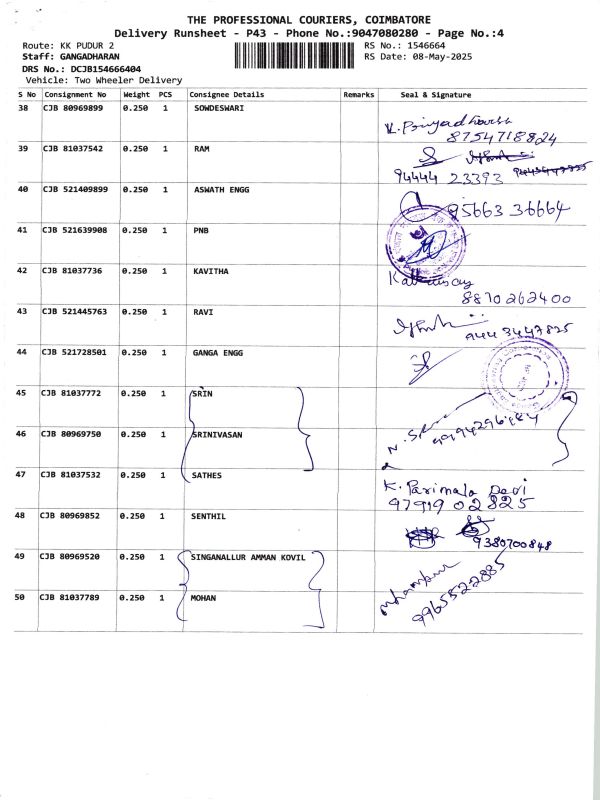 THE PROFESSIONAL COURIERS, COIMBATORE
Delivery Runsheet - P43 - Phone No.:9047080280 - Page No.:4
Route: KK PUDUR 2 RS No.: 1546664
Staff: GANGADHARAN RS Date: 08-May-2025
DRS No.: DCJB154666404
Vehicle: Two Wheeler Delivery
S No Consignment No Weight PCS Consignee Details Remarks Seal & Signature
38 CJB 80969899 0.250 1 SOWDESWARI
8754718824
39 CJB 81037542 0.250 1 RAM
94444 23393
40 CJB 521409899 0.250 1 ASWATH ENGG
95663 36664
41 CJB 521639908 0.250 1 PNB
42 CJB 81037736 0.250 1 KAVITHA
8870262400
43 CJB 521445763 0.250 1 RAVI
9443447825
44 CJB 521728501 0.250 1 GANGA ENGG
45 CJB 81037772 0.250 1 SRIN
46 CJB 80969750 0.250 1 SRINIVASAN
47 CJB 81037532 0.250 1 SATHES
K. Parimala Devi
97919 02825
48 CJB 80969852 0.250 1 SENTHIL
9380700848
49 CJB 80969520 0.250 1 SINGANALLUR AMMAN KOVIL
50 CJB 81037789 0.250 1 MOHAN
9965522885